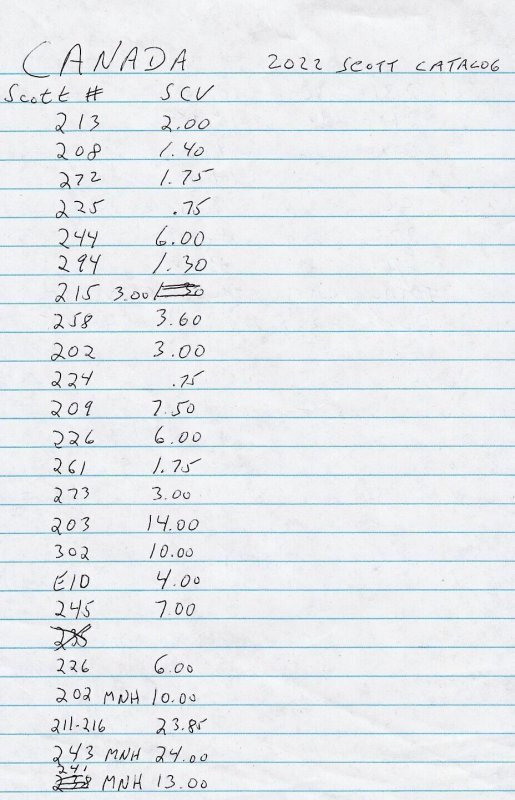 CANADA 2022 SCOTT CATALOG
Scott # SCV
213 2.00
208 1.40
272 1.75
225 .75
244 6.00
294 1.30
215 3.00
258 3.60
202 3.00
224 .75
209 7.50
226 6.00
261 1.75
273 3.00
203 14.00
302 10.00
E10 4.00
245 7.00
226 6.00
202 MNH 10.00
211-216 23.85
243 MNH 24.00
241 MNH 13.00